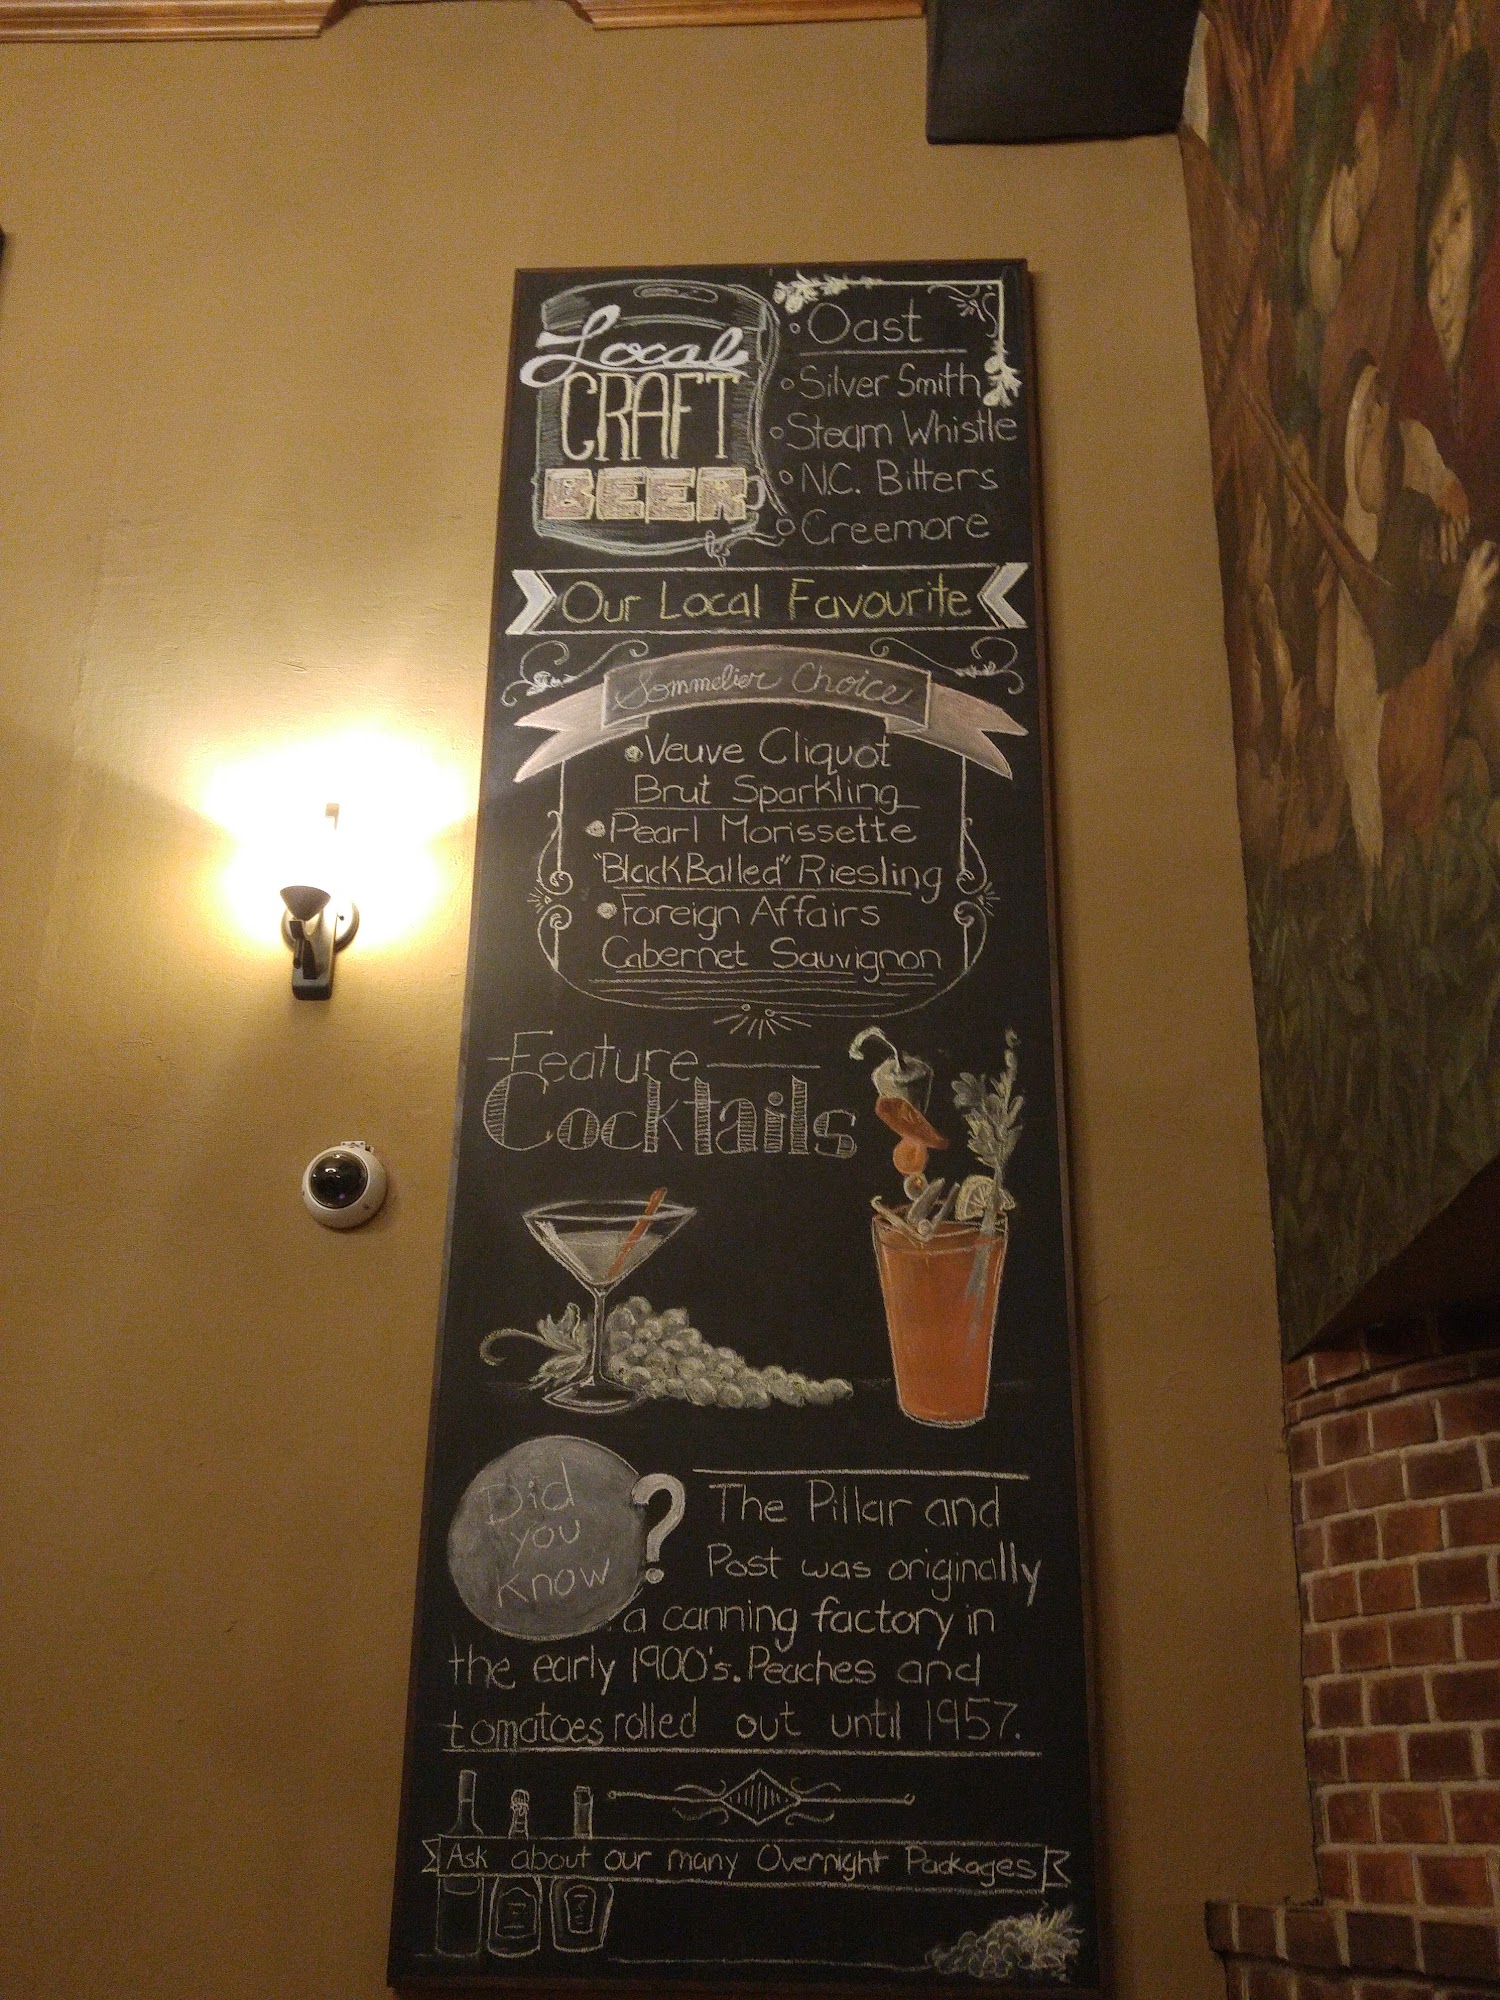 Local
CRAFT
BEER
Oast
Silver Smith
Steam Whistle
N.C. Bitters
Creemore
Our Local Favourite
Sommelier Choice
Veuve Cliquot
Brut Sparkling
Pearl Morissette
"Black Balled" Riesling
Foreign Affairs
Cabernet Sauvignon
Feature
Cocktails
Did
you
know
?
The Pillar and
Post was originally
a canning factory in
the early 1900's. Peaches and
tomatoes rolled out until 1957.
Ask about our many Overnight Packages